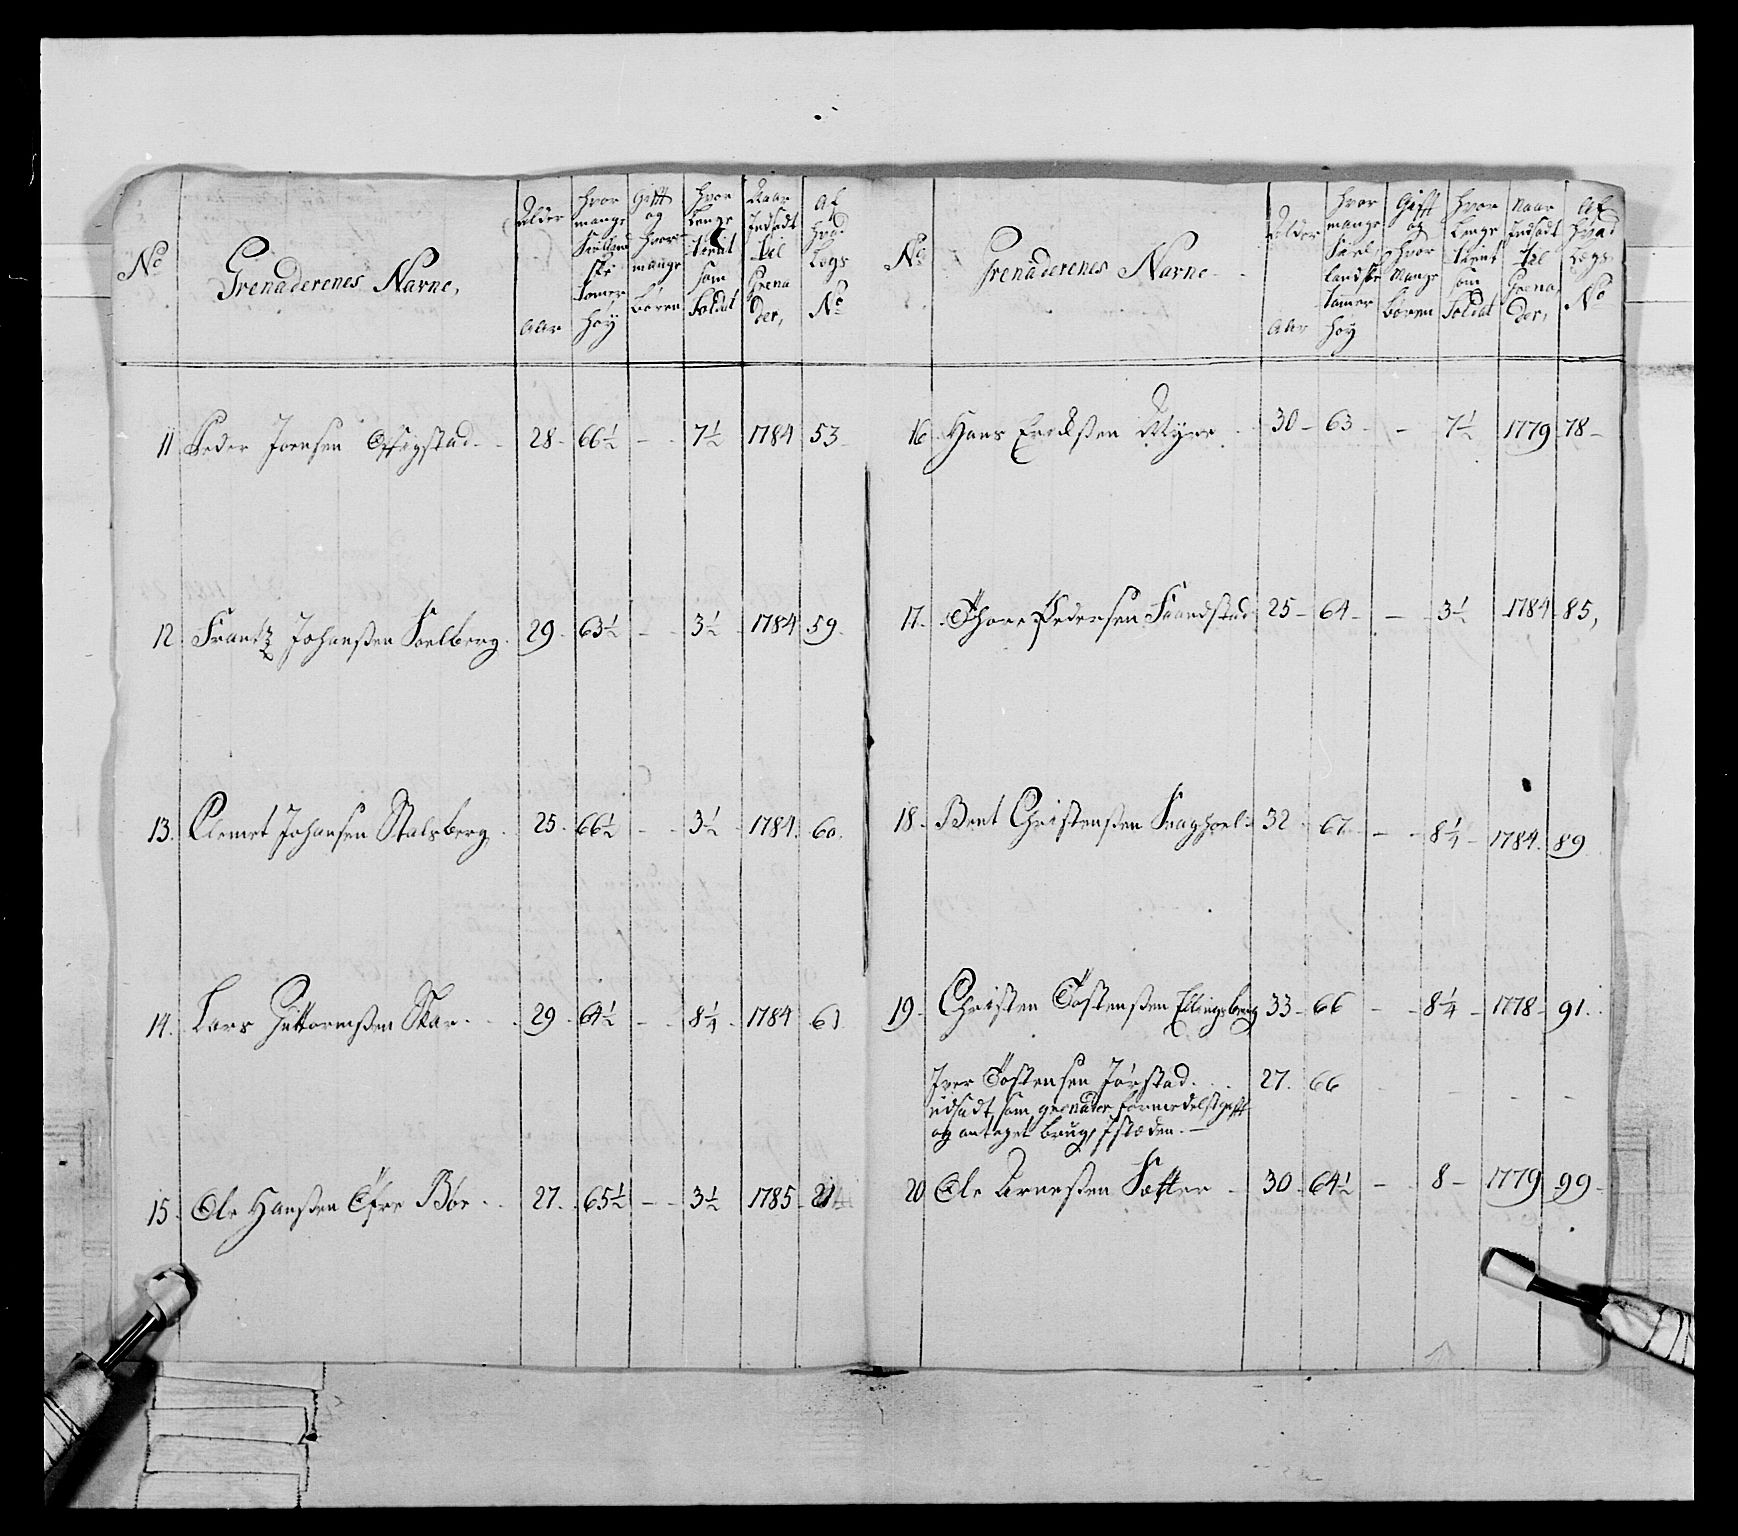 No Grenaderenes Navne, Alder Aar hvor mange Siællandske tomer høy Gift og hvor mange børen hvor længe tient som Soldat Naar Indsadt til Grenader, Af hvad Legs No
11 Peder Joensen 28 - 66½ - - 7½ 1784 53
12 Frantz Johanßen Hoelberg. 29. 63½ - - 3½ 1784 59.
13. Clemet Johansen Stalsberg. 25. 66½ - - 3½ 1784. 60.
14. Lars Guttormßen Skar. 29. 64½ - - 8¼ 1784 61
15. Ole Hanßen Øfre Bøe 27. 65½ - - 3½ 1785 21
No Grenaderenes Navne Alder Aar hvor mange Siællandske tommer høy Gift og hvor Mange børen hvor længe tient som Soldat Naar Indsadt til Grenader, Af hvad Legs No
16 Hans Erichßen Myre 30 - 63 - - 7½ 1779 78 -
17. Thore Pedersen 25 - 64 - - 3½ 1784 85,
18. Bent Christenßen 32 67 - - 8¼ - 1784. 89
19. Christen Tostenßen Ellingsberg 33 - 66 - - 8¼ - 1778 - 91.
Iver Tostensen Jørstad 27. 66 - - -
udsadt som grenader formedelst gift
og antaget brug, Istæden. -
20 Ole Arneßen Sætter 30 - 64½ - - 8 - 1779 99 -